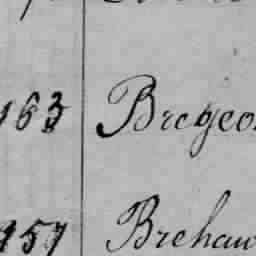 163 Bregeo
151 Brehau